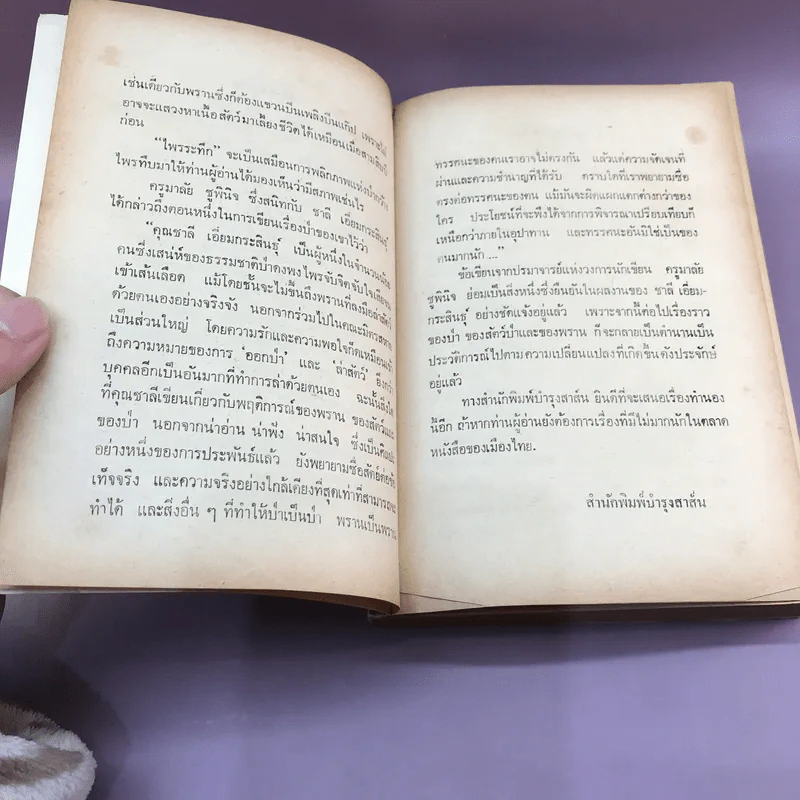 เช่นเดียวกับพรานซึ่งก็ต้องแขวนปืนเพลิงปืนแก๊ป เพราะไม่
อาจจะแสวงหาเนื้อสัตว์มาเลี้ยงชีวิตได้เหมือนเมื่อสามสิบปี
ก่อน
"ไพรระทึก" จะเป็นเสมือนการพลิกภาพแห่งป่ากว้าง
ไพรทึบมาให้ท่านผู้อ่านได้มองเห็นว่ามีสภาพเช่นไร
ครูมาลัย ชูพินิจ ซึ่งสนิทกับ ชาลี เอี่ยมกระสินธุ์
ได้กล่าวถึงตอนหนึ่งในการเขียนเรื่องป่าของเขาไว้ว่า
"คุณชาลี เอี่ยมกระสินธุ์ เป็นผู้หนึ่งในจำนวน
คนซึ่งเสน่ห์ของธรรมชาติป่าดงพงไพรจับจิตจับใจ
เข้าเส้นเลือด แม้โดยชั้นจะไม่ขึ้นถึงพรานที่ลงมือล่าสัตว์
ด้วยตนเองอย่างจริงจัง นอกจากร่วมไปในคณะมิตรสหาย
เป็นส่วนใหญ่ โดยความรักและความพอใจก็ดเหมือนเข้า
ถึงความหมายของการ 'ออกป่า' และ 'ล่าสัตว์' ยิ่งกว่า
บุคคลอีกเป็นอันมากที่ทำการล่าด้วยตนเอง ฉะนั้นสิ่งใด
ที่คุณชาลีเขียนเกี่ยวกับพฤติการณ์ของพราน ของสัตว์และ
ของป่า นอกจากน่าอ่าน น่าฟัง น่าสนใจ ซึ่งเป็นศิลป
อย่างหนึ่งของการประพันธ์แล้ว ยังพยายามซื่อสัตย์ต่อข้อ
เท็จจริง และความจริงอย่างใกล้เคียงที่สุดเท่าที่สามารถจะ
ทำได้ และสิ่งอื่น ๆ ที่ทำให้ป่าเป็นป่า พรานเป็นพราน
ทรรศนะของคนเราอาจไม่ตรงกัน แล้วแต่ความจัดเจนที่
ผ่านและความชำนาญที่ได้รับ ตราบใดที่เราพยายามซื่อ
ตรงต่อทรรศนะของตน แม้มันจะผิดแผกแตกต่างกว่าของ
ใคร ประโยชน์ที่จะพึงได้จากการพิจารณาเปรียบเทียบก็
เหนือกว่าภายในอุปาทาน และทรรศนะอันมิใช่เป็นของ
ตนมากนัก ..."
ข้อเขียนจากปรมาจารย์แห่งวงการนักเขียน ครูมาลัย
ชูพินิจ ย่อมเป็นสิ่งหนึ่งซึ่งยืนยันในผลงานของ ชาลี เอี่ยม-
กระสินธุ์ อย่างชัดแจ้งอยู่แล้ว เพราะจากนี้ต่อไปเรื่องราว
ของป่า ของสัตว์ป่าและของพราน ก็จะกลายเป็นตำนานเป็น
ประวัติการณ์ไปตามความเปลี่ยนแปลงที่เกิดขึ้น ดังประจักษ์
อยู่แล้ว
ทางสำนักพิมพ์บำรุงสาส์น ยินดีที่จะเสนอเรื่องทำนอง
นี้อีก ถ้าหากท่านผู้อ่านยังต้องการเรื่องที่มีไม่มากนักในตลาด
หนังสือของเมืองไทย.
สำนักพิมพ์บำรุงสาส์น